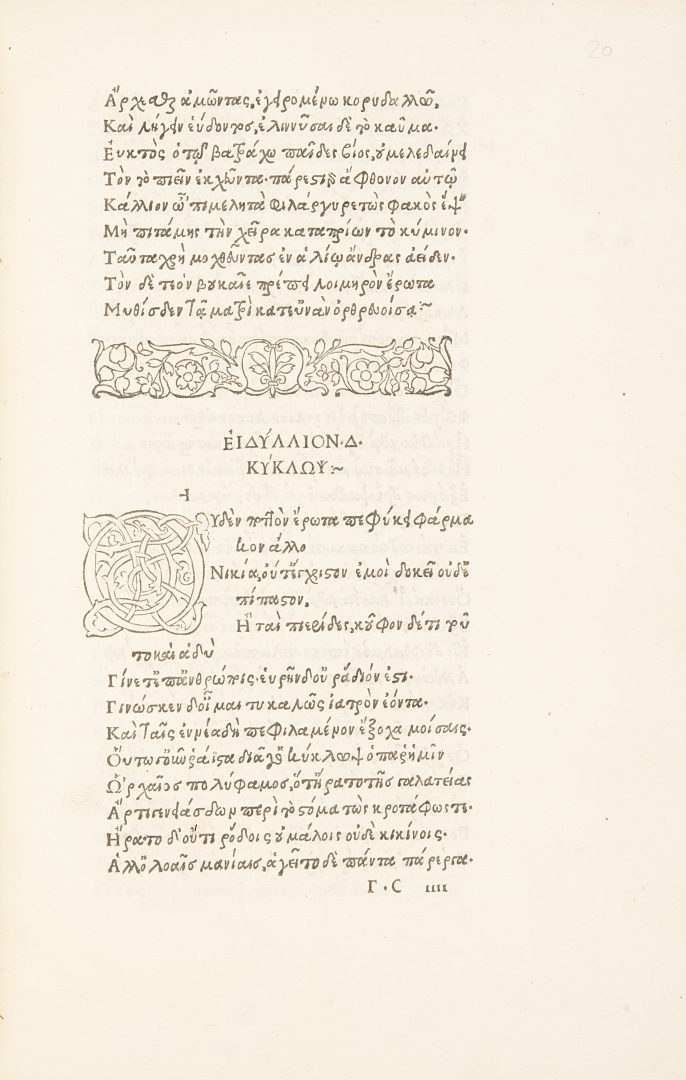 20
Ἄρχεσθαι ἀμῶντας, ἐγειρομένω κορυδαλλῶ,
Καὶ λήγειν εὕδοντος, ἐλιννῦσαι δὲ τὸ καῦμα.
Εὐκτὸς ὁ τῶ βατράχω παῖδες βίος, οὐ μελεδαίνει
Τὸν τὸ πιεῖν ἐκχεῦντα. πάρεστι δ' ἄφθονον αὐτῷ
Κάλλιον ὦ 'πιμελητὰ φιλάργυρε τὼς φακὼς ἕψειν
Μὴ πιτάμης τὴν χεῖρα καταπρίων τὸ κύμινον.
Ταῦτα χρὴ μοχθεῦντας ἐν ἁλίῳ ἄνδρας ἀείδεν.
Τὸν δὲ τεὸν βουκαῖε πρέπει λοιμηρὸν ἔρωτα
Μυθίσδεν τᾷ ματρὶ κατ' εὐνὰν ὀρθρευοίσᾳ :~
ΕἸΔΎΛΛΙΟΝ.Δ.
ΚΎΚΛΩΨ :~
ΟΥδὲν ποττὸν ἔρωτα πεφύκει φάρμα
κον ἄλλο
Νικία, οὔτ' ἔγχιστον ἐμοὶ δοκεῖ οὐδ' ἐ
πίπαστον,
Ἢ ταὶ πιερίδες, κοῦφον δέ τι τοῦ
το καὶ ἁδὺ
Γίνετ' ἐπ' ἀνθρώποις. εὑρῆν δ' οὐ ῥᾴδιόν ἐστι.
Γινώσκεν δ' οἶμαι τυ καλῶς ἰατρὸν ἐόντα.
Καὶ ταῖς ἐννέα δὴ πεφιλαμένον ἔξοχα μοίσαις.
Οὕτω γοῦν ῥάϊστα διᾶγεν κύκλωψ ὁ παρ' ἡμῖν
Ὡρχαῖος πολύφαμος, ὅτ' ἤρατο τῆς γαλατείας
Ἄρτι γενειάσδων περὶ τὸ στόμα τὼς κροτάφως τε.
Ἤρατο δ' οὔτι ῥόδοις οὐ μάλοις οὐδὲ κικίνοις.
Ἀλλ' ὀλοαῖς μανίαις, ἁγεῖτο δὲ πάντα πάρεργα.
Γ . C iiii